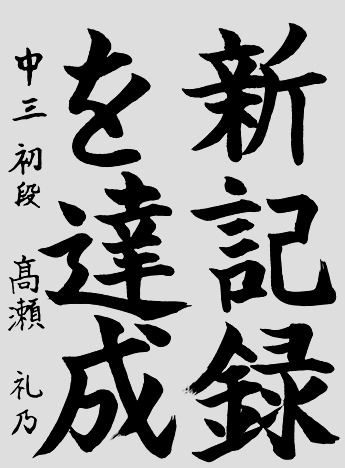 新記録
を達成
中三 初段 髙瀬 礼乃